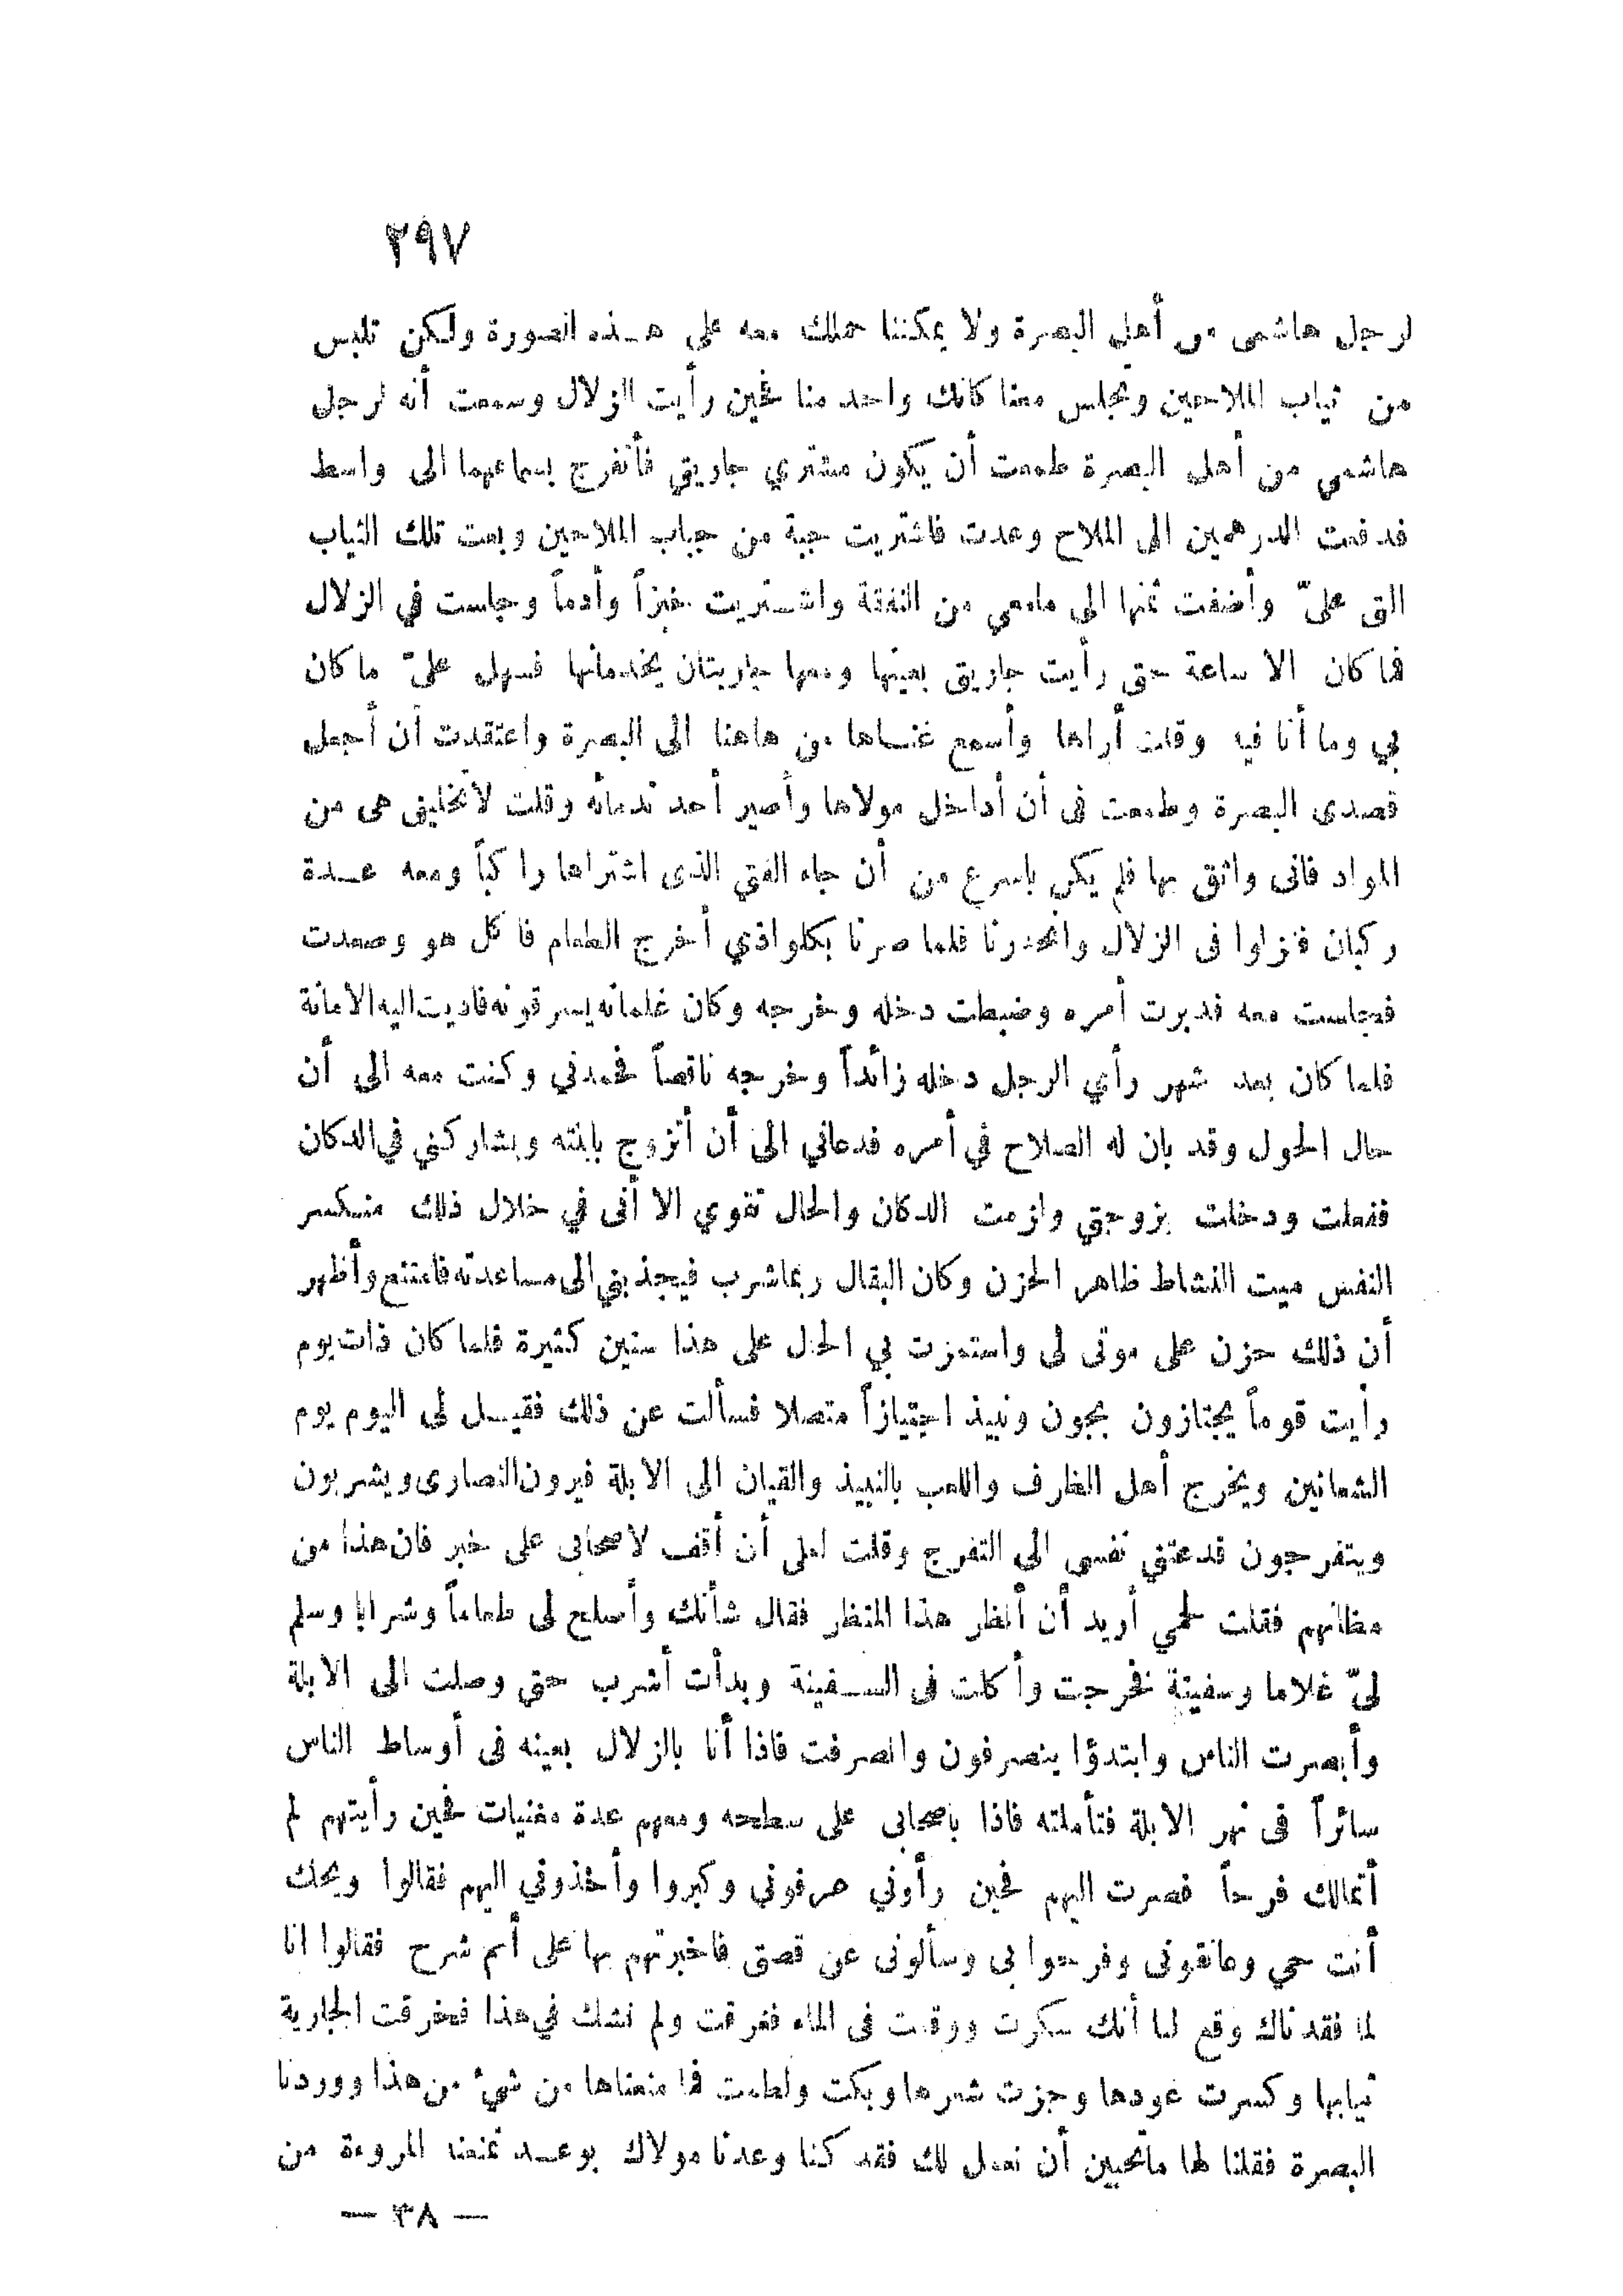 ٢٩٧
لرجل هاشمى من أهل البصرة ولا يمكننا حملك معه على هـذه الصورة ولكن تلبس
من ثياب الملاحين وتجلس معنا كانك واحد منا فحين رأيت الزلال وسمعت أنه لرجل
هاشمي من أهل البصرة طمعت أن يكون مشتري جاريتي فأتفرج بسماعهما الى واسط
فدفعت الدرهمين الى الملاح وعدت فاشتريت جبة من جباب الملاحين وبعت تلك الثياب
التى علىّ وأضفت ثمنها الى مامعي من النفقة واشـتريت خبزاً وأدماً وجلست في الزلال
فما كان الا ساعة حتى رأيت جاريتى بعينها ومعها جاريتان يخدمانها فسهل علىّ ما كان
بي وما أنا فيه وقلت أراها وأسمع غنـاها من هاهنا الى البصرة واعتقدت أن أجعل
قصدى البصرة وطمعت فى أن أداخل مولاها وأصير أحد ندمائه وقلت لاتخليني هى من
المواد فانى واثق بها فلم يكن باسرع من أن جاء الفتى الذى اشتراها راكباً ومعه عـدة
ركبان فنزلوا فى الزلال وانحدرنا فلما صرنا بكلواذي أخرج الطعام فاكل هو وصعدت
فجلست معه فدبرت أمره وضبطت دخله وخرجه وكان غلمانه يسرقونه فاديت اليه الامانة
فلما كان بعد شهر رأي الرجل دخله زائداً وخرجه ناقصاً فحمدني وكنت معه الى أن
حال الحول وقد بان له الصلاح في أمره فدعاني الى أن أتزوج بابنته ويشاركني في الدكان
ففعلت ودخلت بزوجتى ولزمت الدكان والحال تقوي الا أنى في خلال ذلك منـكسر
النفس ميت النشاط ظاهر الحزن وكان البقال ربماشرب فيجذبني الى مساعدته فامتنع وأظهر
أن ذلك حزن على موتى لى واستمرت بي الحال على هذا سنين كثيرة فلما كان ذات يوم
رأيت قوماً يجتازون بجون ونبيذ اجتيازاً متصلا فسألت عن ذلك فقيـل لى اليوم يوم
الشعانين ويخرج أهل الظرف واللعب بالنبيذ والقيان الى الابلة فيرون النصارى ويشربون
ويتفرجون فدعتني نفسى الى التفرج وقلت لعلى أن أقف لاصحابى على خبر فان هذا من
مظانهم فقلت لحمي أريد أن أنظر هذا المنظر فقال شأنك وأصلح لى طعاماً وشرابا وسلم
لىّ غلاما وسفينة فخرجت وأكلت فى السـفينة وبدأت أشرب حتى وصلت الى الابلة
وأبصرت الناس وابتدؤا ينصرفون وانصرفت فاذا أنا بالزلال بعينه فى أوساط الناس
سائراً فى نهر الابلة فتأملته فاذا باصحابى على سطحه ومعهم عدة مغنيات فحين رأيتهم لم
أتمالك فرحاً فصرت اليهم فحين رأوني عرفونى وكبروا وأخذوني اليهم فقالوا ويحك
أنت حي وعانقونى وفرحوا بى وسألونى عن قصتى فاخبرتهم بها على أتم شرح فقالوا انا
لما فقدناك وقع لنا أنك سكرت ووقعت فى الماء فغرقت ولم نشك في هذا فخرقت الجارية
ثيابها وكسرت عودها وجزت شعرها وبكت ولطمت فما منعناها من شيء من هذا ووردنا
البصرة فقلنا لها ماتحبين أن نعمل لك فقد كنا وعدنا مولاك بوعـد تمنعنا المروءة من
— ٣٨ —